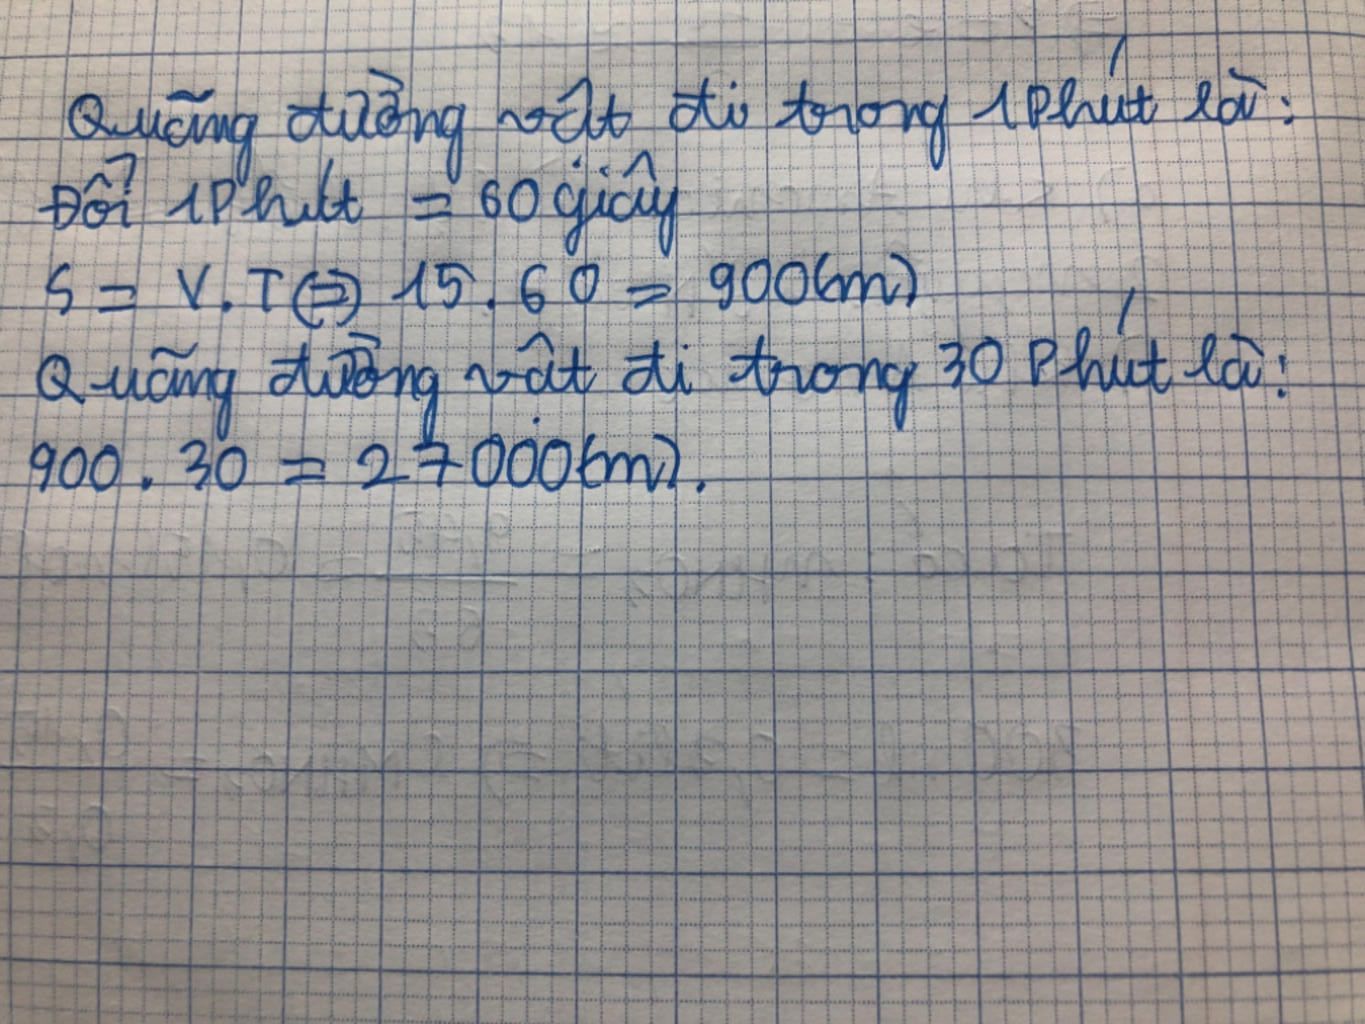 Quãng đường vật đi trong 1 Phút là:
Đổi 1 Phút = 60 giây
S = V.T (=) 15.60 = 900(m)
Quãng đường vật đi trong 30 Phút là:
900.30 = 27000(m).